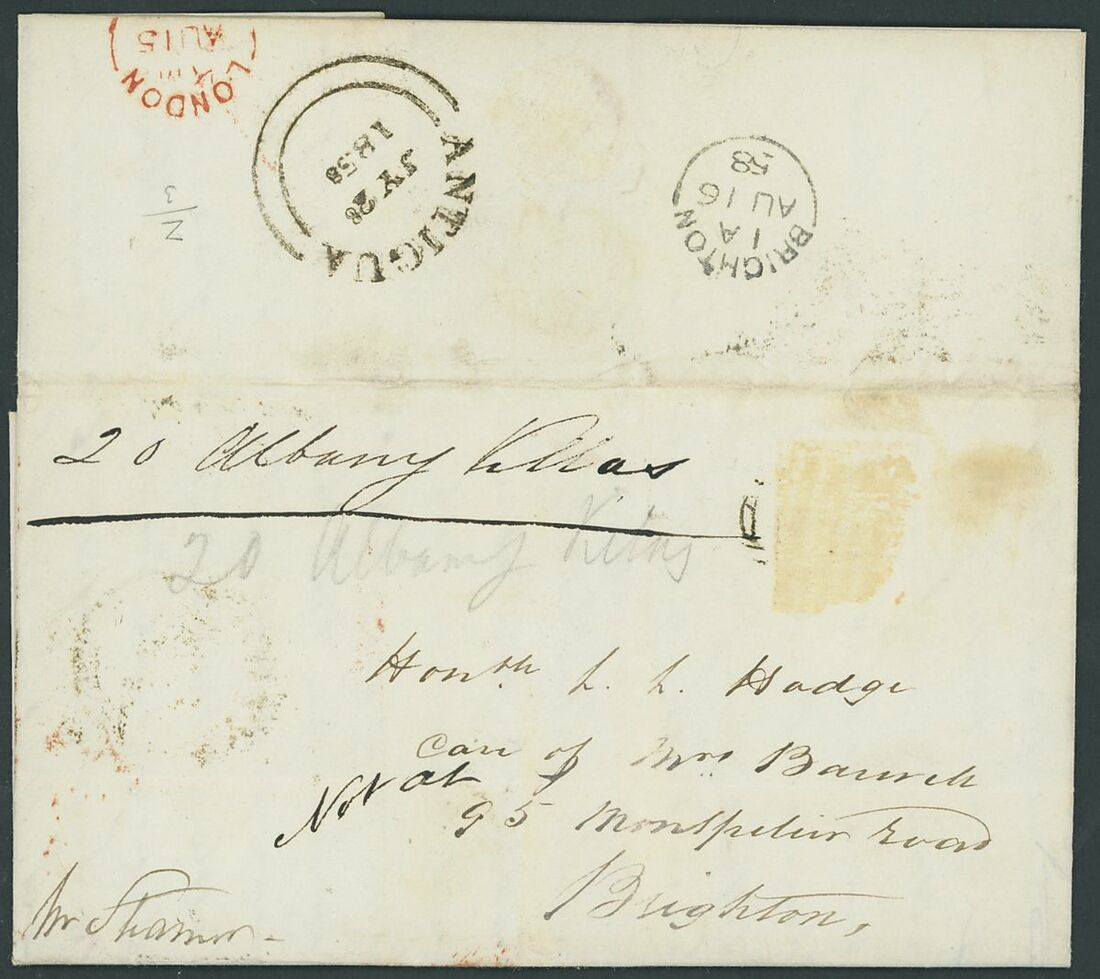 LONDON
AU 15
ANTIGUA
JY 28
1858
BRIGHTON
1 A
AU 16
58
N
3
20 Albany Villas
20 Albany Villas
Honble L. L. Hodge
Care of Mrs. Barrell
Not at
95 Montpelier Road
Brighton,
Steamer